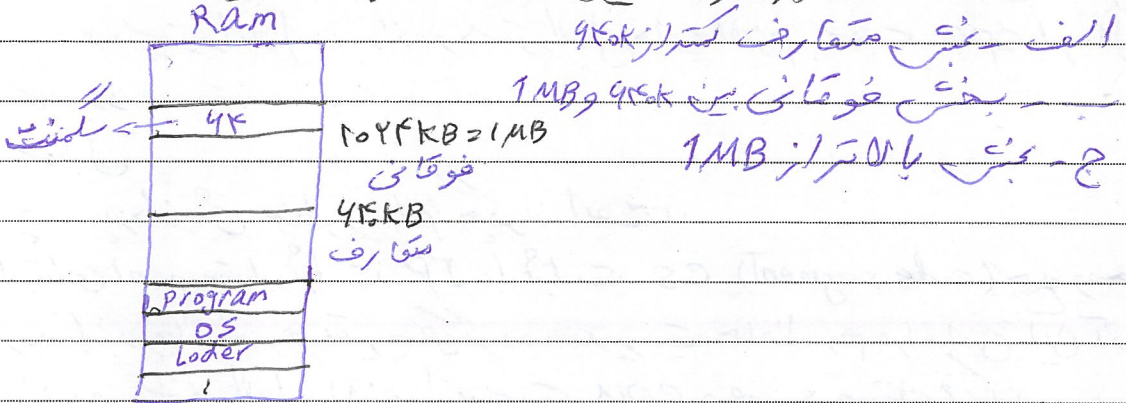 Ram
الف - بخش متعارف کمتر از ۶۴۰k
ب - بخش فوقانی بین ۶۴۰k و 1MB
ج - بخش بالاتر از 1MB
سگمنت ← ۶۴
۱۰۲۴KB = 1MB
فوقانی
۶۴۰KB
متعارف
program
OS
Loder